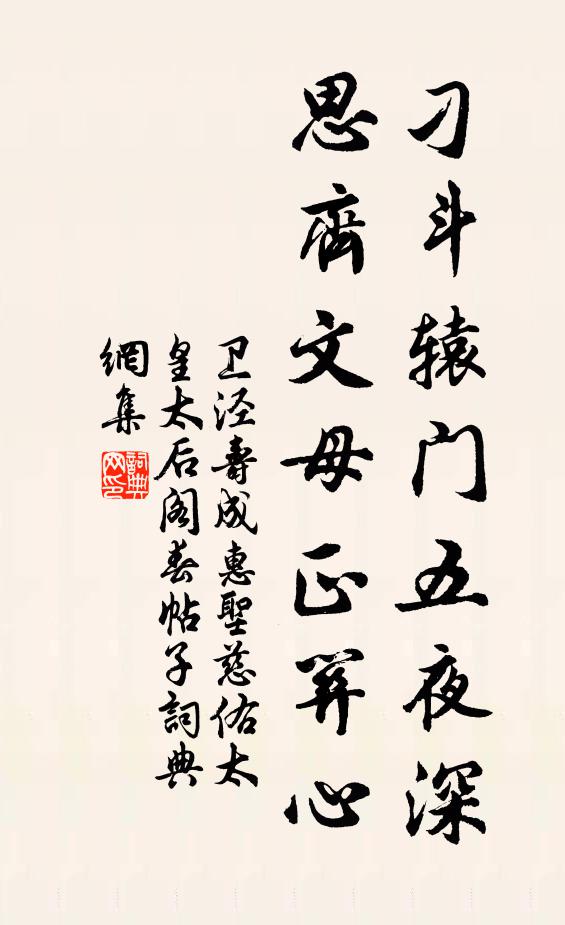 刁斗辕门五夜深
思齊文母正关心
卫泾壽成惠聖慈佑太
皇太后阁春帖子詞典
網集
詞典
网印